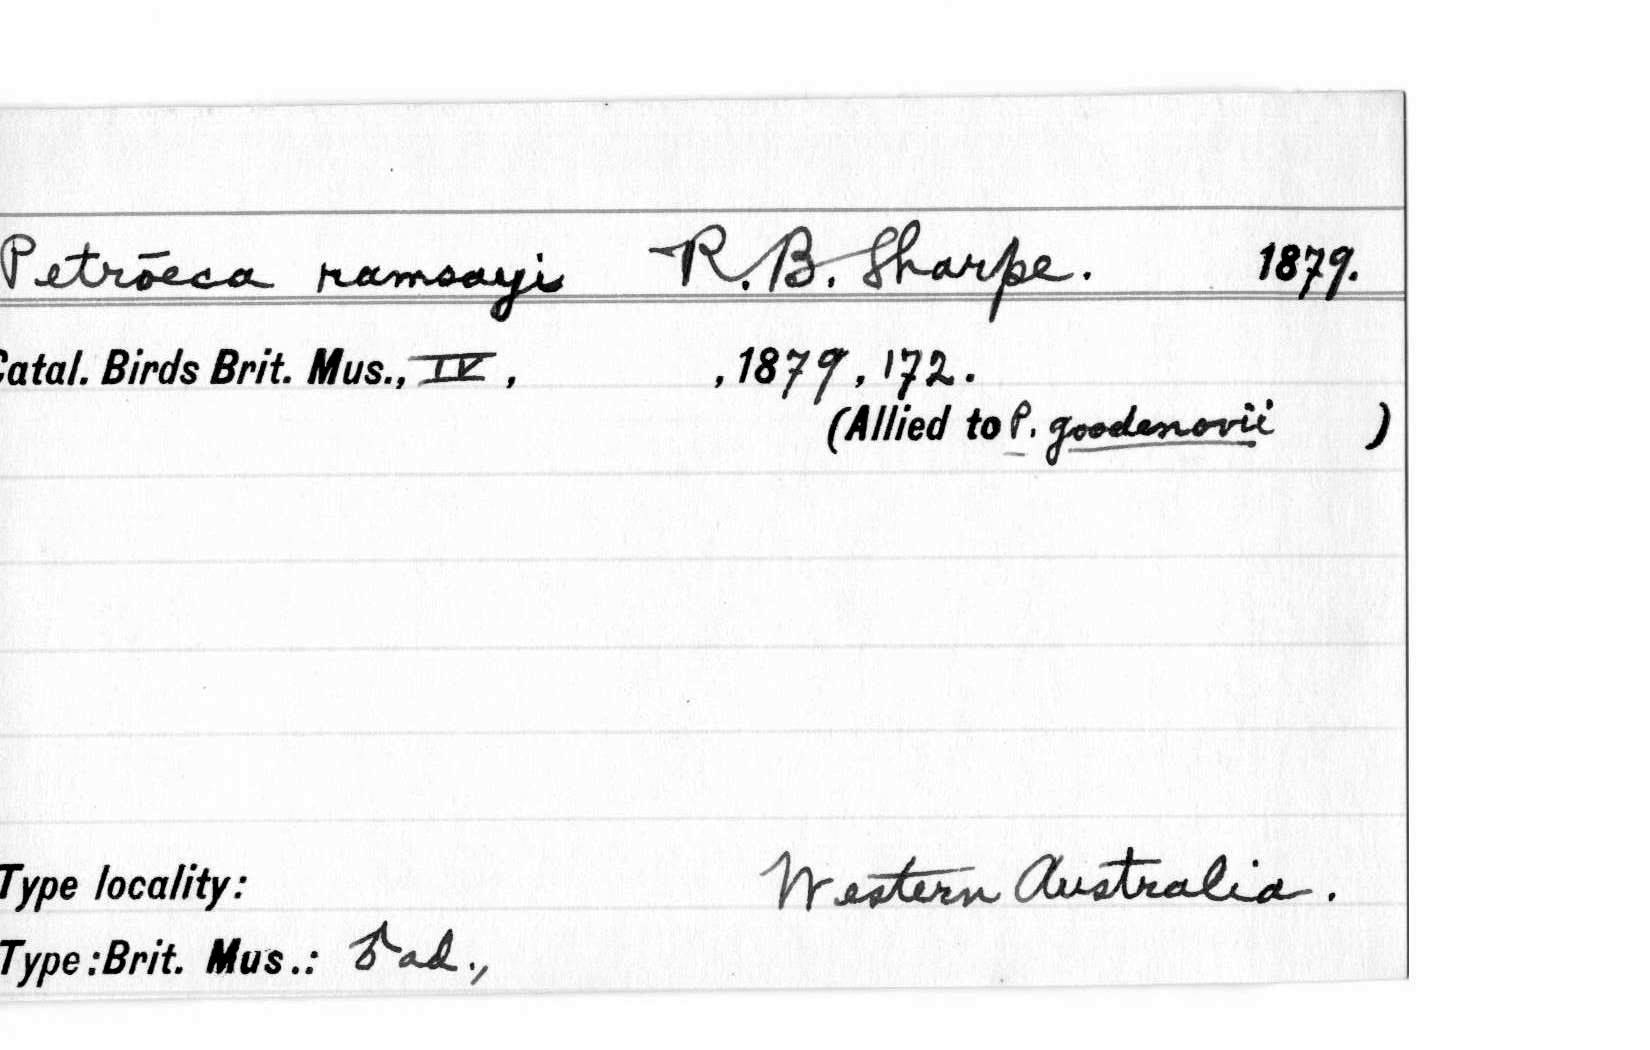 Petrōeca ramsayi R.B. Sharpe. 1879.
Catal. Birds Brit. Mus., IV, , 1879, 172.
(Allied to P. goodenovii )
Type locality: Western Australia.
Type: Brit. Mus.: ♂ ad.,